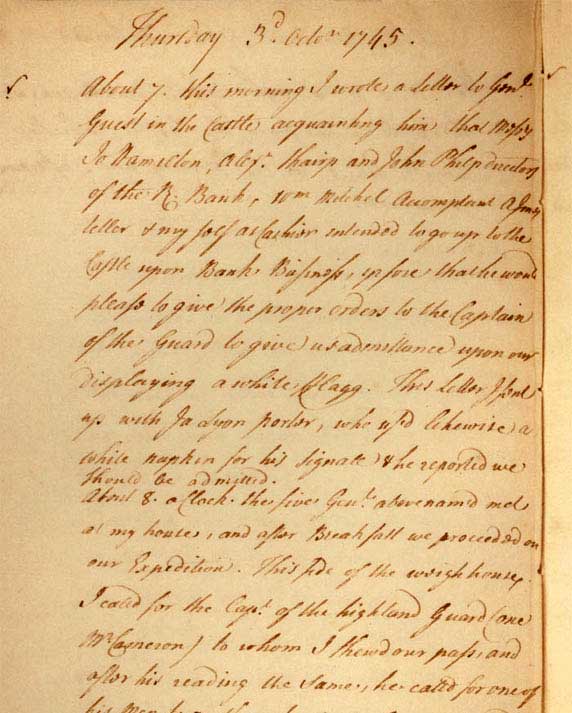 Thursday 3d. Octor. 1745.
About 7. this morning I wrote a Letter to Genl.
Guest in the Castle acquainting him that Messrs
Jo Hamilton, Alexr. Shairp and John Philp directors
of the R. Bank, Wm Mitchel Accomptant A Jnny
teller & my self as Cashier intended to go up to the
Castle upon Bank Business, yrfore that he would
please to give the proper orders to the Captain
of the Guard to give us admittance upon our
displaying a white fflagg. This Letter I sent
up with Ja Lyon porter, who us'd likewise a
white napkin for his signale & he reported we
should be admitted.
About 8. o Clock the five Gentl. abovenam'd met
at my house, and after Breakfast we proceeded on
our Expedition. This side of the weighhouse
I called for the Capt. of the highland Guard (one
Mr. Cameron) to whom I shewd our pass, and
after his reading the same, he called for one of
his Men